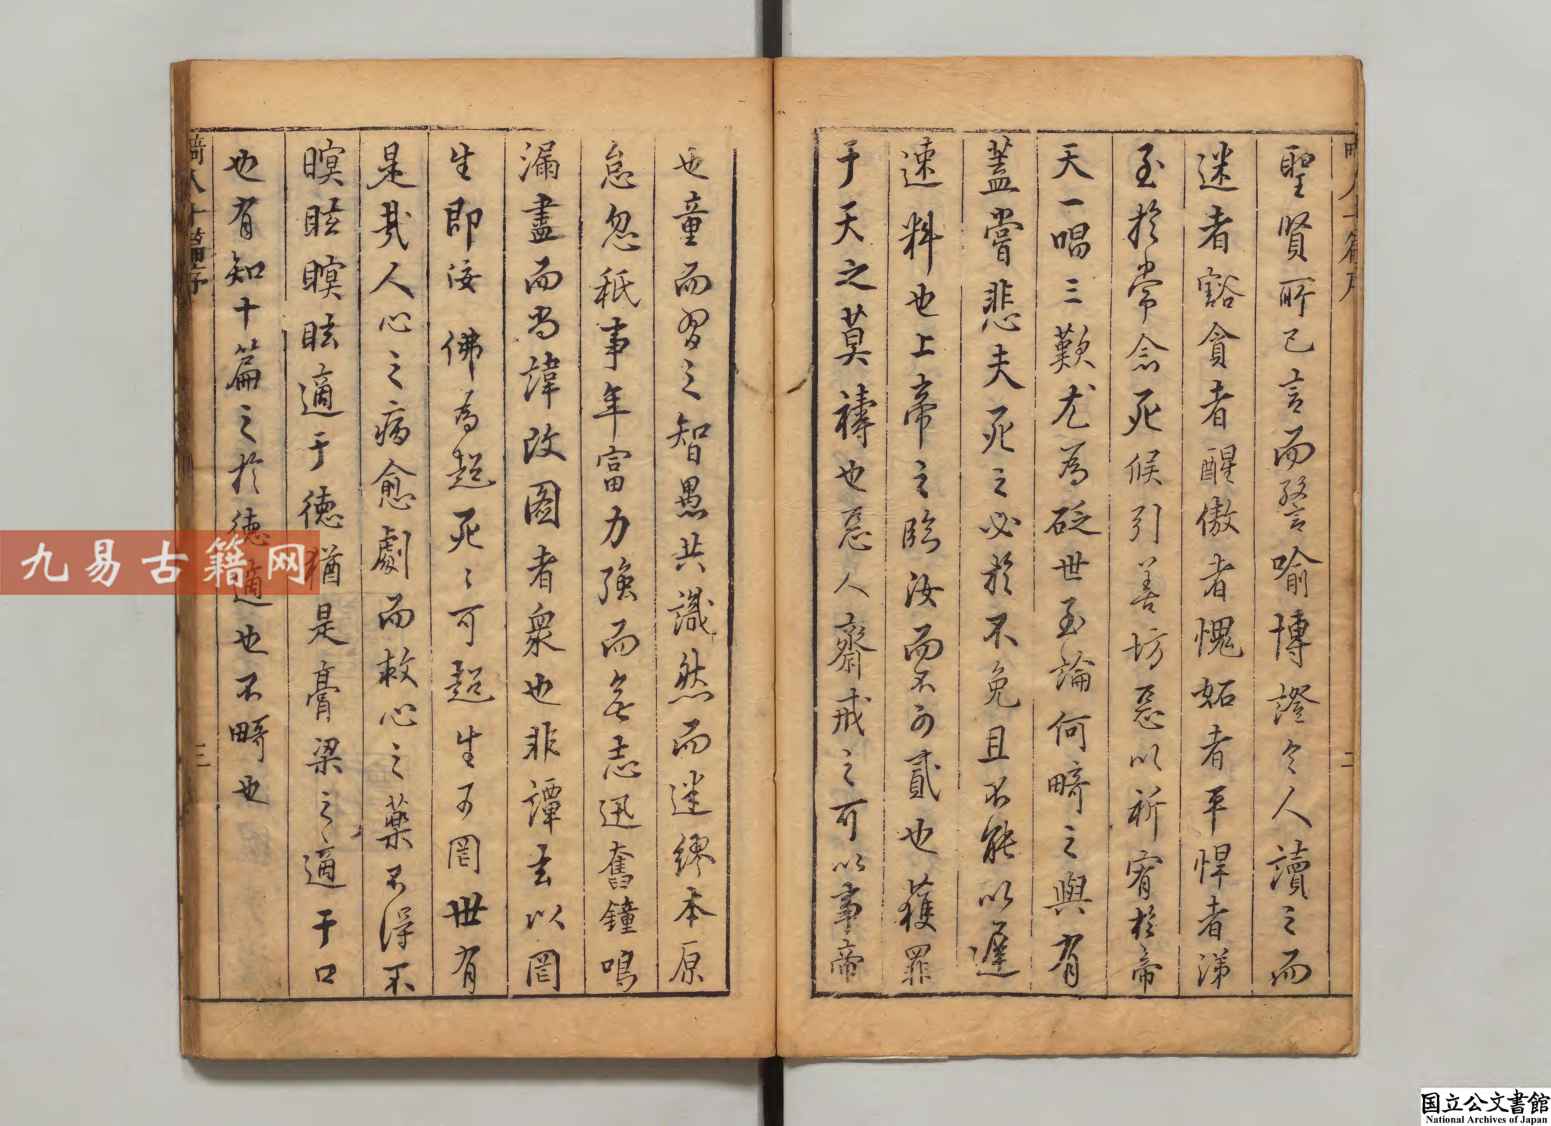 聖賢所已言而警喻博證令人讀之而
迷者豁貪者醒傲者愧妬者平悍者涕
至於常念死候引善坊惡以祈宥於帝
天一唱三歎尤為砭世至論何畸之與有
蓋嘗悲夫死之必於不免且不能以遲
速料也上帝之臨汝而不可貳也獲罪
于天之莫禱也惡人齋戒之可以事帝
也童而習之智愚共識然而迷繆本原
怠忽秖事年富力強而無志迅奮鐘鳴
漏盡而尚諱改圖者衆也非譚玄以罔
生即佞佛為超死死可超生可罔世有
是哉人心之病愈劇而救心之藥不得不
瞑眩瞑眩適于德猶是膏粱之適于口
也有知十篇之於德適也不畸也
畸人十篇序
二
畸人十篇序
三
九易古籍网
国立公文書館
National Archives of Japan